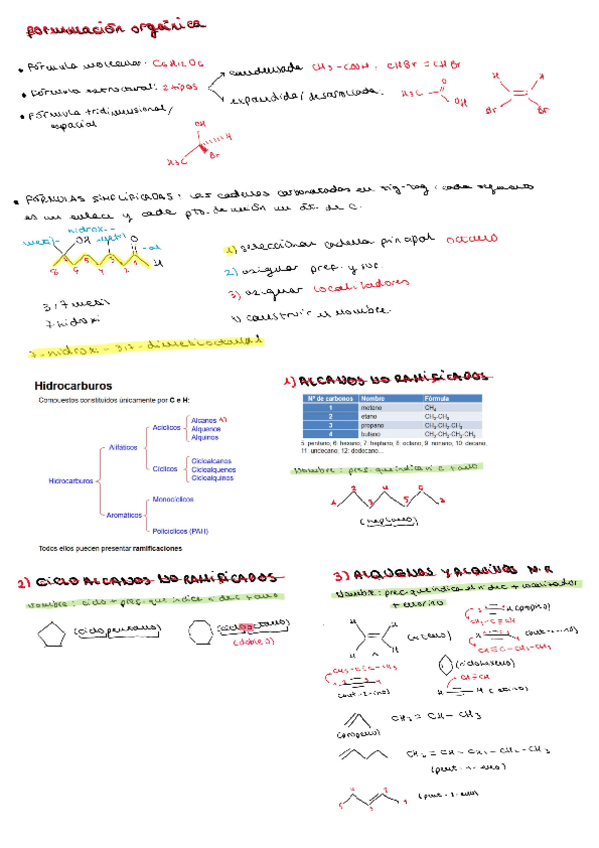 Formulación orgánica
• Fórmula molecular: C6H12O6
• Fórmula estructural: 2 tipos
condensada CH3-COOH, CHBr=CHBr
expandida/desarrollada:
H3C
O
OH
H
H
Br
Br
• Fórmula tridimensional/
espacial
OH
H
Br
H3C
• FÓRMULAS SIMPLIFICADAS: las cadenas carbonatadas en zig-zag, cada segmento
es un enlace y cada pto. de unión un át. de C.
hidrox.
metil-
OH
metil
O
-al
H
8 6 5 4 2 1
1) seleccionar cadena principal octano
2) asignar pref. y suf.
3) asignar localizadores
construir el nombre.
3,7 metil
7-hidroxi
7-hidroxi-3,7-dimetiloctanal
Hidrocarburos
Compuestos constituidos únicamente por C e H:
Hidrocarburos
Alifáticos
Acíclicos
Alcanos
Alquenos
Alquinos
Cíclicos
Cicloalcanos
Cicloalquenos
Cicloalquinos
Aromáticos
Monocíclicos
Policíclicos (PAH)
Todos ellos pueden presentar ramificaciones
1) ALCANOS NO RAMIFICADOS
Nº de carbonos Nombre Fórmula
1 metano CH4
2 etano CH3-CH3
3 propano CH3-CH2-CH3
4 butano CH3-CH2-CH2-CH3
5: pentano; 6: hexano; 7: heptano; 8: octano; 9: nonano; 10: decano;
11: undecano; 12: dodecano...
Nombre: pref. que indica nº C + ano
1 2 3 4 5 6
(heptano)
2) CICLO ALCANOS NO RAMIFICADOS
Nombre: ciclo + pref. que indica nº de C + ano
(ciclopentano)
(ciclooctano)
(doble o)
3) ALQUENOS Y ALQUINOS N.R
Nombre: pref. que indica el nº de C + localizador
+ eno/ino
H
H
(eteno)
H (propino)
CH3-C≡CH
CH≡C-CH2-CH3
CH3-C≡C-CH3
(but-2-ino)
(ciclohexeno)
CH≡CH
H
H (etino)
(propeno)
CH2=CH-CH3